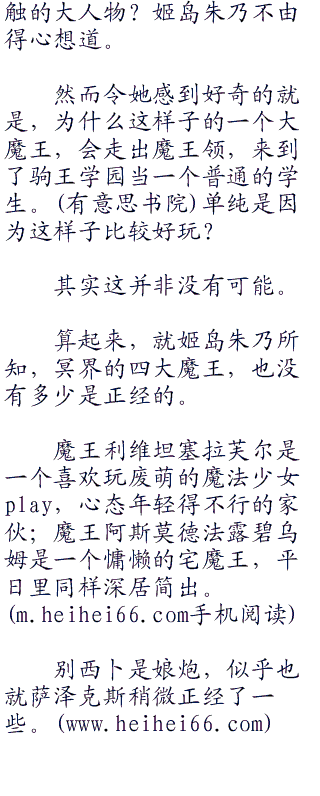 触的大人物？姬岛朱乃不由
得心想道。
然而令她感到好奇的就
是，为什么这样子的一个大
魔王，会走出魔王领，来到
了驹王学园当一个普通的学
生。(有意思书院)单纯是因
为这样子比较好玩？
其实这并非没有可能。
算起来，就姬岛朱乃所
知，冥界的四大魔王，也没
有多少是正经的。
魔王利维坦塞拉芙尔是
一个喜欢玩废萌的魔法少女
play，心态年轻得不行的家
伙；魔王阿斯莫德法露碧乌
姆是一个慵懒的宅魔王，平
日里同样深居简出。
(m.heihei66.com手机阅读)
别西卜是娘炮，似乎也
就萨泽克斯稍微正经了一
些。(www.heihei66.com)